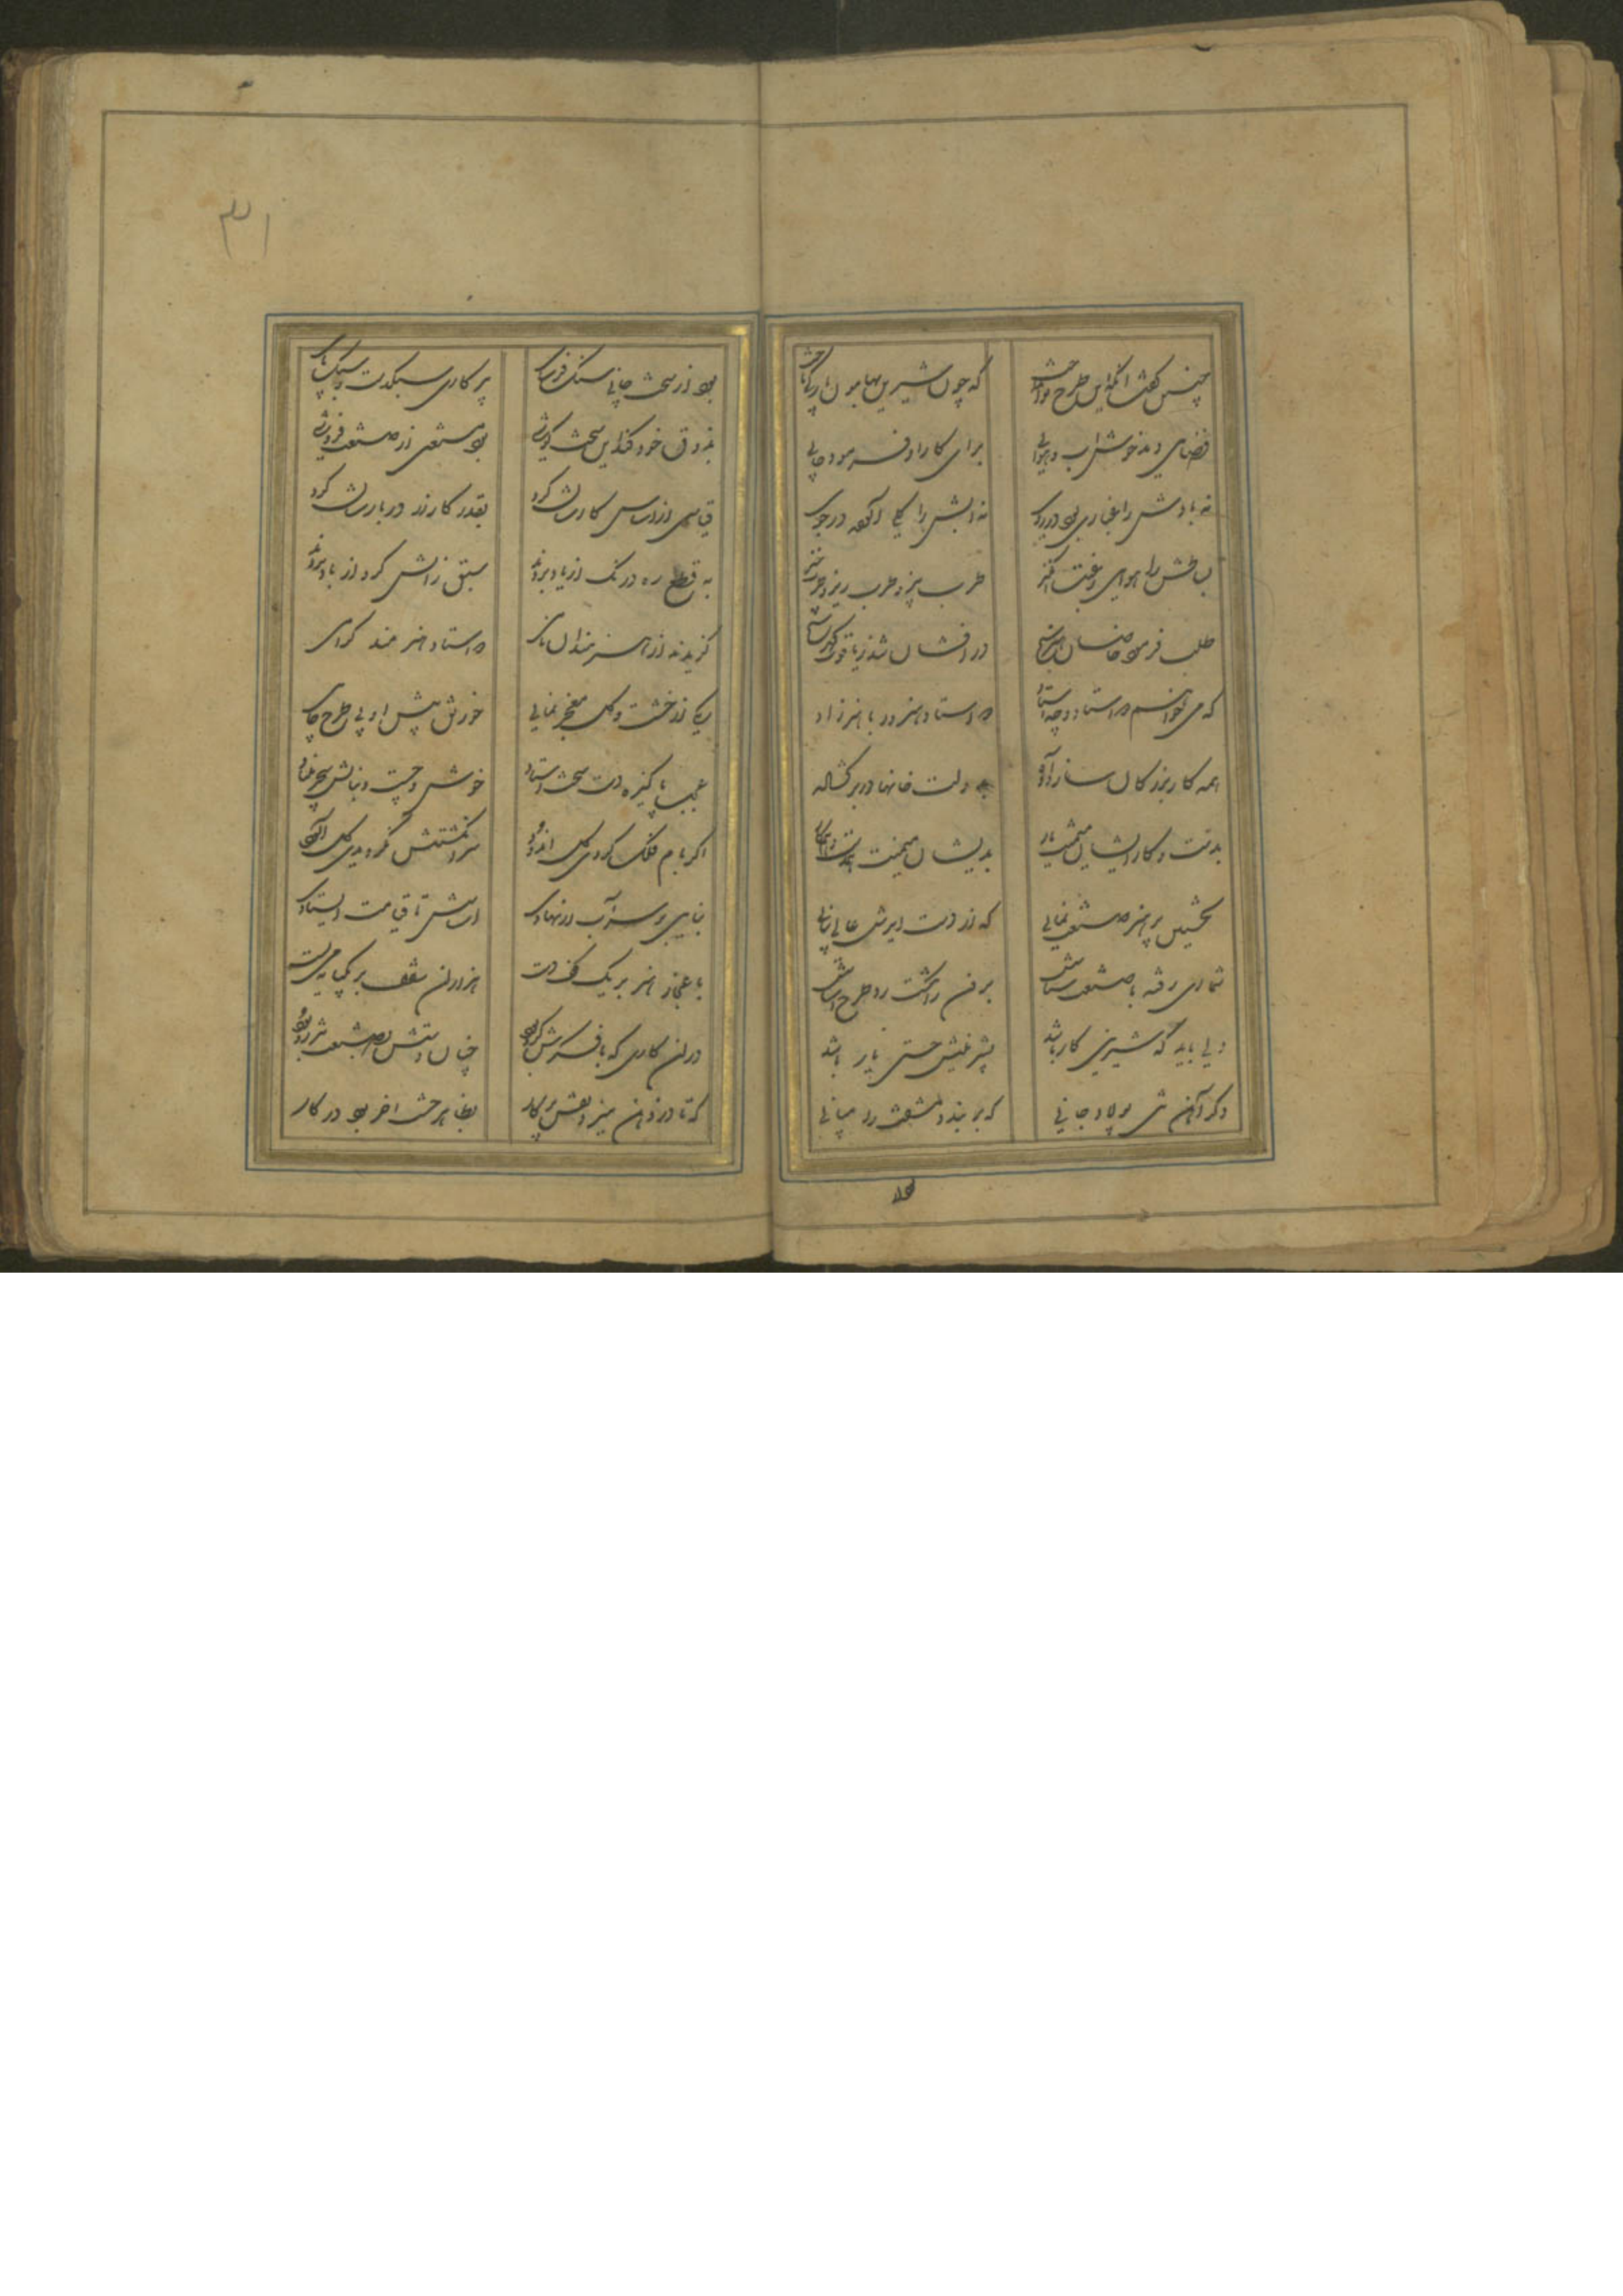 چنین گفت آنکه این طرح نو انداخت که چون شیرین بهامون بارگی تاخت
فضای دید خوش آب و هوایی برای کار او فرمود جایی
نه بادش را غباری بود در روی نه آبش را گلی آلوده در جوی
بساطش را هوای رغبت انگیز طرب بیز و طرب ریز و طرب خیز
طلب فرمود خاصان هنرسنج در افشان شد ز یاقوت گهرسنج
که می خواهم دو استاد و چه استاد دو استاد هنرور با هنر زاد
همه کار بزرگان ساز داده بدولت خانها در برگشاده
بدست و کار ایشان میمنت یار بدیشان میمنت همدست و همکار
نخستین پر هنر صنعت نمایی که از دست آیدش عالی بنایی
شماری رفته با صنعت شناسش برون از کشت و طرح اساسش
ولی باید که شیرین کار باشد بشیرینیش حسنی یار باشد
دگر آهن تنی پولاد جانی که بربندد مشقت را میانی
کله
۳۱
بود از سخت جانی سنگ فرسای بپرکاری سبکدست و سبک پای
بذوق خود کند این سخت کوشی بود مستغنی از صنعت فروشی
قیاسی از اساس کارشان کرد بقدر کار زر در بارشان کرد
به قطع ره درنگ از یاد بردند سبق ز آتش کرو از باد بردند
گزیدند از هنرمندان نامی دو استاد هنرمند گرامی
یکی از خشت و گل معجز نمایی خورنق پیش او بی طرح جایی
عجب پاکیزه دست سخت استاد خوش و چست و بنایش سحر بنیاد
اگر بام فلک کردی گل اندود سر انگشتش نگردیدی گل آلود
بنایی بر سر آب ار نهادی اساسش تا قیامت ایستادی
باعجاز هنر بر یک کف دست هزاران سقف بر یک پایه می بست
در آن کاری که با فکرش گرو بود چنان دستش بصنعت تیز رو بود
که تا در ذهن میزد نقش پرکار بظاهر خشت آخر بود در کار